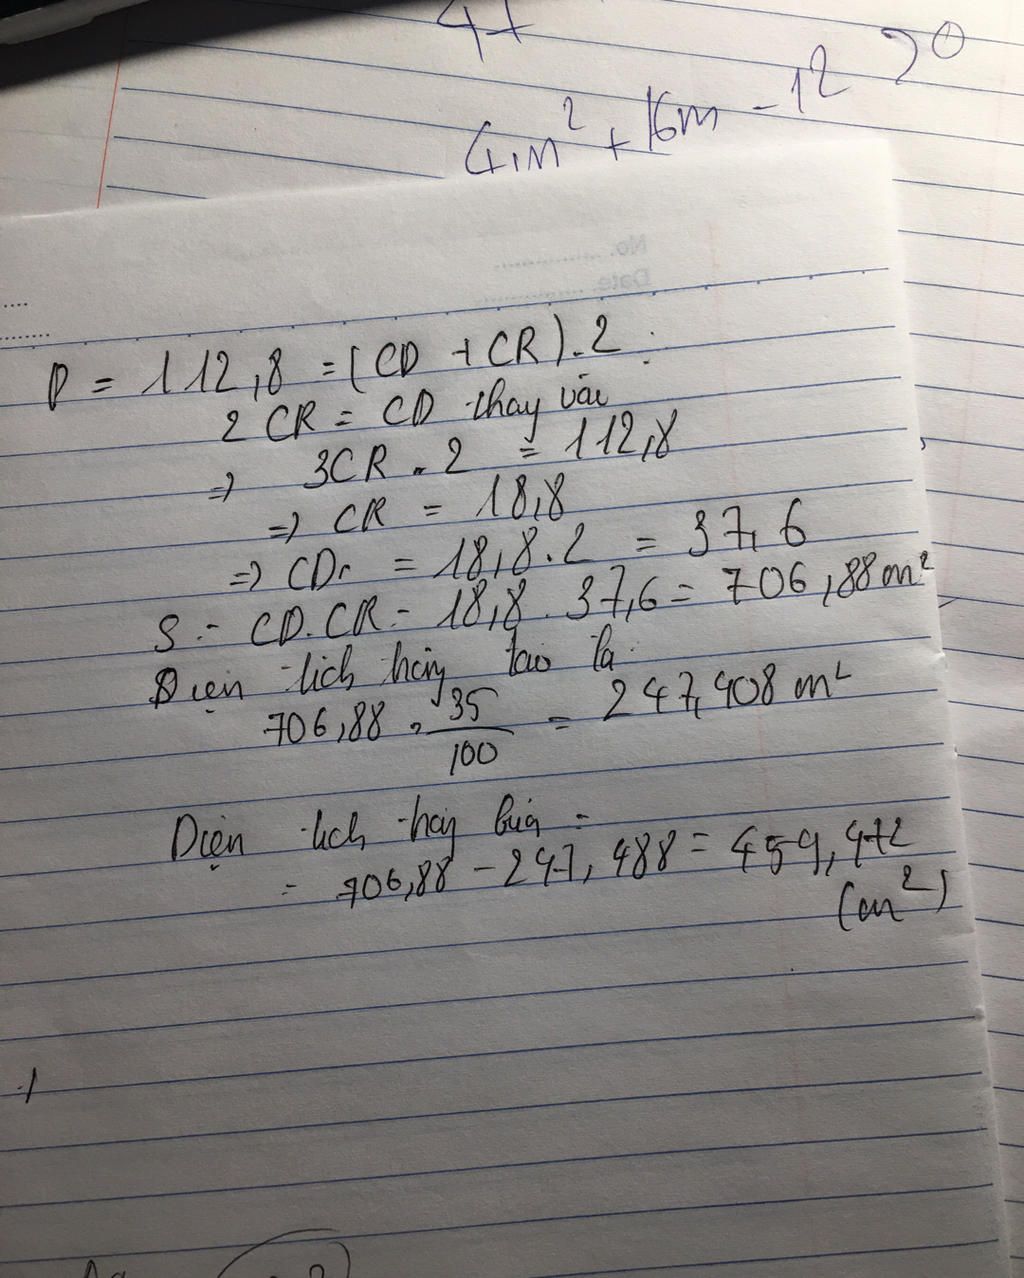 4m² + 16m - 12 > 0
No. ................
Date. ................
P = 112,8 = (CD + CR).2
2 CR = CD thay vào
=> 3CR . 2 = 112,8
=> CR = 18,8
=> CD = 18,8.2 = 37,6
S = CD.CR = 18,8 . 37,6 = 706,88 m²
Diện tích táo là
706,88 . 35/100 = 247,408 m²
Diện tích =
= 706,88 - 247,488 = 459,472
(m²)